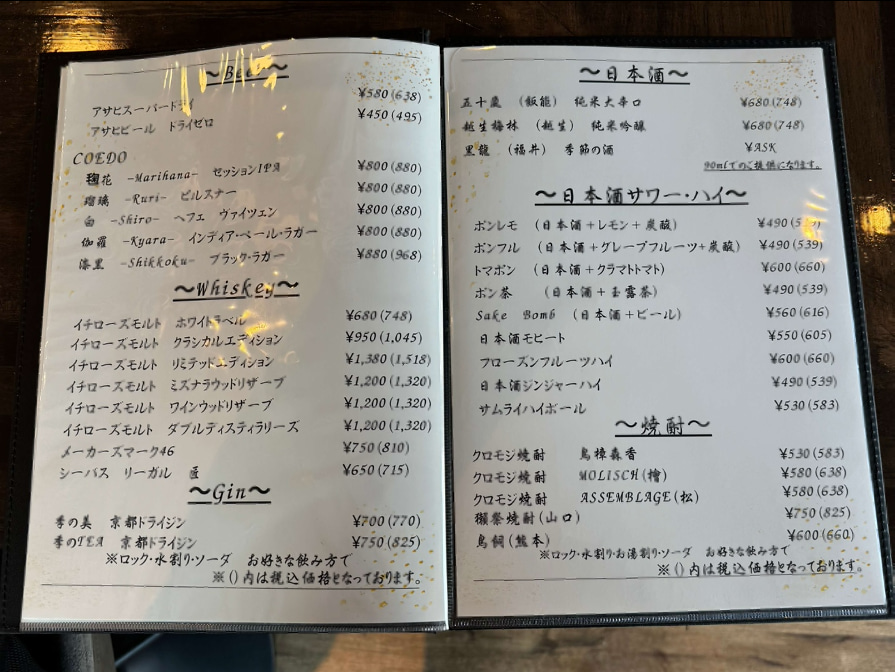 ~Beer~
アサヒスーパードライ ¥580(638)
アサヒビール ドライゼロ ¥450(495)
COEDO
毱花 -Marihana- セッションIPA ¥800(880)
瑠璃 -Ruri- ピルスナー ¥800(880)
白 -Shiro- ヘフェ ヴァイツェン ¥800(880)
伽羅 -Kyara- インディア・ペール・ラガー ¥800(880)
漆黒 -Shikkoku- ブラック・ラガー ¥880(968)
~Whiskey~
イチローズモルト ホワイトラベル ¥680(748)
イチローズモルト クラシカルエディション ¥950(1,045)
イチローズモルト リミテッドエディション ¥1,380(1,518)
イチローズモルト ミズナラウッドリザーブ ¥1,200(1,320)
イチローズモルト ワインウッドリザーブ ¥1,200(1,320)
イチローズモルト ダブルディスティラリーズ ¥1,200(1,320)
メーカーズマーク46 ¥750(810)
シーバス リーガル 匠 ¥650(715)
~Gin~
季の美 京都ドライジン ¥700(770)
季のTEA 京都ドライジン ¥750(825)
※ロック・水割り・ソーダ お好きな飲み方で
※()内は税込価格となっております。
~日本酒~
五十嵐 (飯能) 純米大辛口 ¥680(748)
越生梅林 (越生) 純米吟醸 ¥680(748)
黒龍 (福井) 季節の酒 ¥ASK
90mlでのご提供になります。
~日本酒サワー・ハイ~
ポンレモ (日本酒+レモン+炭酸) ¥490
ポンフル (日本酒+グレープフルーツ+炭酸) ¥490(539)
トマポン (日本酒+クラマトトマト) ¥600(660)
ポン茶 (日本酒+玉露茶) ¥490(539)
Sake Bomb (日本酒+ビール) ¥560(616)
日本酒モヒート ¥550(605)
フローズンフルーツハイ ¥600(660)
日本酒ジンジャーハイ ¥490(539)
サムライハイボール ¥530(583)
~焼酎~
クロモジ焼酎 烏樟森香 ¥530(583)
クロモジ焼酎 MOLISCH(檜) ¥580(638)
クロモジ焼酎 ASSEMBLAGE(松) ¥580(638)
獺祭焼酎(山口) ¥750(825)
鳥飼(熊本) ¥600(660)
※ロック・水割り・お湯割り・ソーダ お好きな飲み方で
※()内は税込価格となっております。